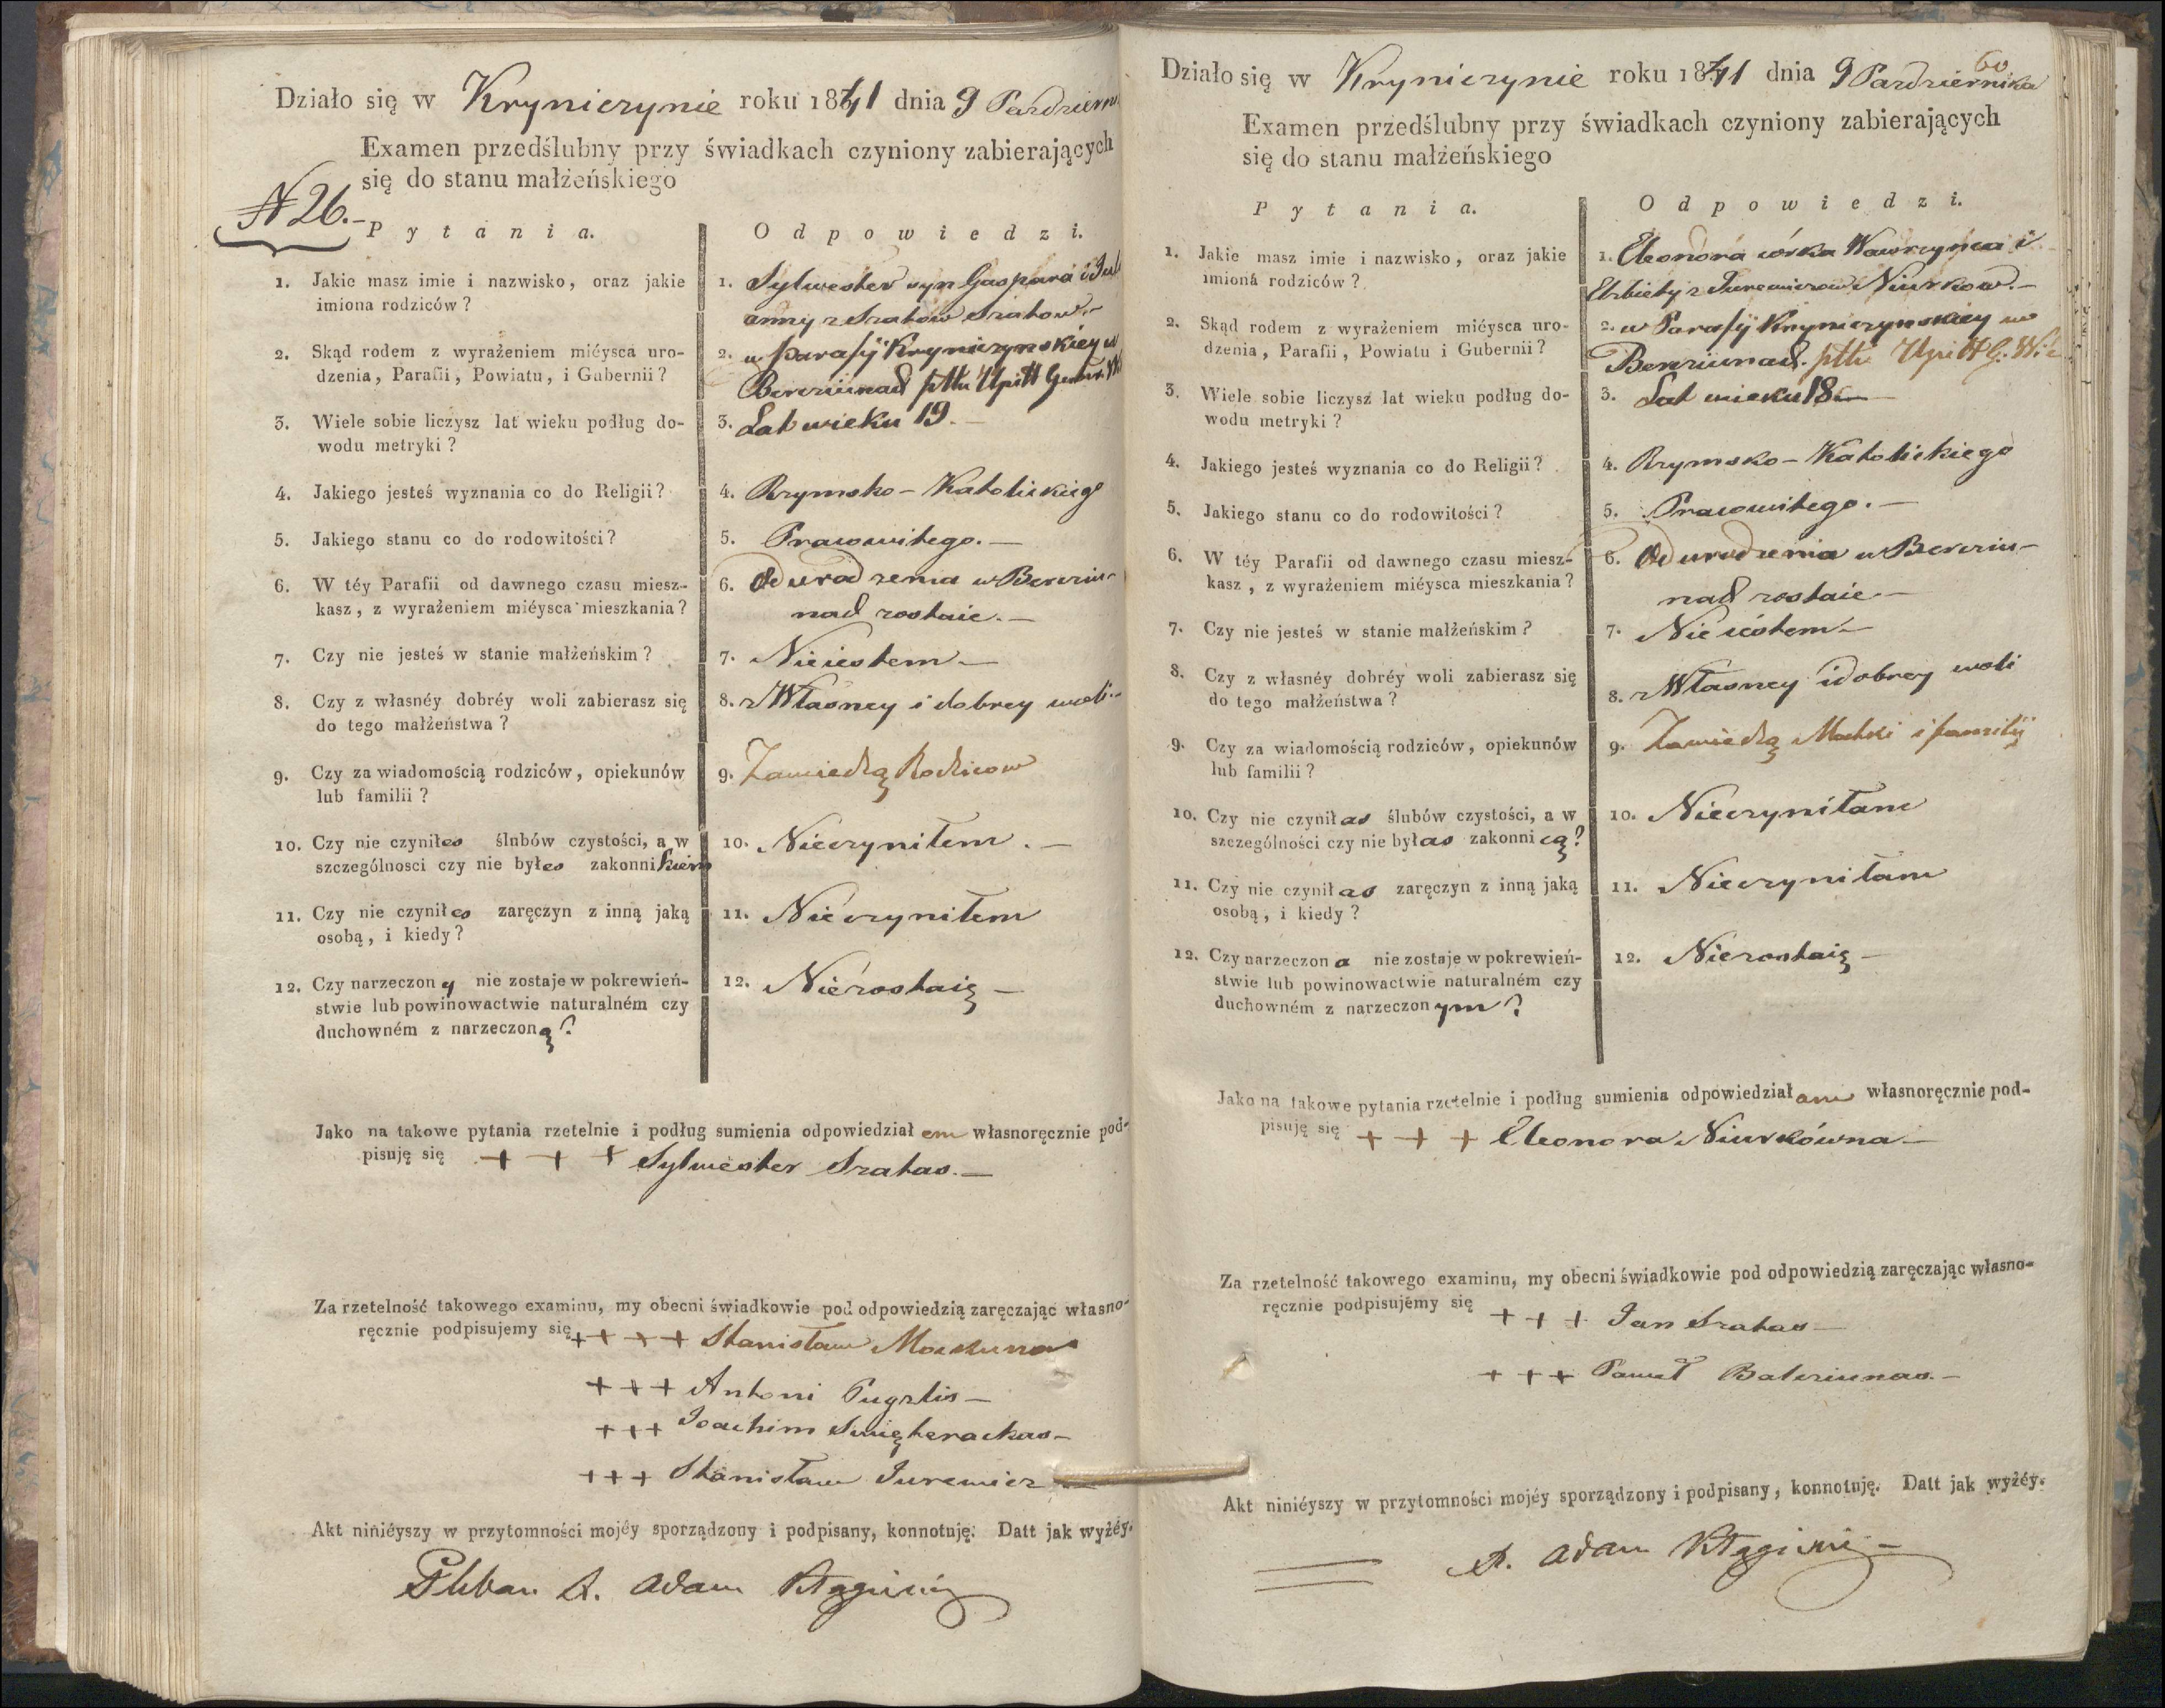 Działo się w Kryniczynie roku 1841 dnia 9 Pazdziern
Examen przedślubny przy świadkach czyniony zabierających
się do stanu małżeńskiego
N 26.
Pytania.
Odpowiedzi.
1. Jakie masz imie i nazwisko, oraz jakie
imiona rodziców?
1. Sylwester syn Gaspara i Jul
anny z Szatow Szatow.
2. Skąd rodem z wyrażeniem miéysca uro-
dzenia, Parafii, Powiatu, i Gubernii?
2. w Parafij Kryniczynskiéy w
Berziunad pttu Upitt Guber. W
3. Wiele sobie liczysz lat wieku podług do-
wodu metryki?
3. Lat wieku 19.
4. Jakiego jesteś wyznania co do Religii?
4. Rzymsko-Katolickiego
5. Jakiego stanu co do rodowitości?
5. Pracowitego.
6. W téy Parafii od dawnego czasu miesz-
kasz, z wyrażeniem miéysca mieszkania?
6. Od urodzenia w Berziu-
nad zostaie.
7. Czy nie jesteś w stanie małżeńskim?
7. Nie iestem
8. Czy z własnéy dobréy woli zabierasz się
do tego małżeństwa?
8. z Własney i dobrey woli
9. Czy za wiadomością rodziców, opiekunów
lub familii?
9. Zawiedzą Rodzicow
10. Czy nie czyniłes ślubów czystości, a w
szczególnosci czy nie byłes zakonnikiem
10. Nieczyniłem.
11. Czy nie czyniłes zaręczyn z inną jaką
osobą, i kiedy?
11. Nieczyniłem
12. Czy narzeczony nie zostaje w pokrewień-
stwie lub powinowactwie naturalném czy
duchowném z narzeczoną?
12. Niezostaię
Jako na takowe pytania rzetelnie i podług sumienia odpowiedziałem własnoręcznie pod-
pisuję się + + + Sylwester Szatas.
Za rzetelność takowego examinu, my obecni świadkowie pod odpowiedzią zaręczając własno-
ręcznie podpisujemy się + + + + Stanisław
+ + + Antoni Pugzlis
+ + + Joachim
+ + + Stanisław Jurewicz
Akt niniéyszy w przytomności mojéy sporządzony i podpisany, konnotuję. Datt jak wyżéy.
Pleban X. Adam
60
Działo się w Kryniczynie roku 1841 dnia 9 Pazdziernika
Examen przedślubny przy świadkach czyniony zabierających
się do stanu małżeńskiego
Pytania.
Odpowiedzi.
1. Jakie masz imie i nazwisko, oraz jakie
imioná rodziców?
1. Eleonora córka Wawrzynca i
Elzbiety z Jurewiczow Niurkow.
2. Skąd rodem z wyrażeniem miéysca uro-
dzenia, Parafii, Powiatu i Gubernii?
2. w Parafij Kryniczynskiey w
Berziunad. pttu Upitt G. Wi
3. Wiele sobie liczysz lat wieku podług do-
wodu metryki?
3. Lat wieku 18
4. Jakiego jesteś wyznania co do Religii?
4. Rzymsko-Katolickiego
5. Jakiego stanu co do rodowitości?
5. Pracowitego.
6. W téy Parafii od dawnego czasu miesz-
kasz, z wyrażeniem miéysca mieszkania?
6. Od urodzenia w Berziu-
nad zostaie.
7. Czy nie jesteś w stanie małżeńskim?
7. Nie iestem
8. Czy z własnéy dobréy woli zabierasz się
do tego małżeństwa?
8. z Własney i dobrey woli
9. Czy za wiadomością rodziców, opiekunów
lub familii?
9. Zawiedzą Matki i familij
10. Czy nie czyniłas ślubów czystości, a w
szczególności czy nie byłas zakonnicą?
10. Nieczyniłam
11. Czy nie czyniłas zaręczyn z inną jaką
osobą, i kiedy?
11. Nieczyniłam
12. Czy narzeczona nie zostaje w pokrewień-
stwie lub powinowactwie naturalném czy
duchowném z narzeczonym?
12. Niezostaię
Jako na takowe pytania rzetelnie i podług sumienia odpowiedziałam własnoręcznie pod-
pisuję się + + + Eleonora Niurkówna
Za rzetelność takowego examinu, my obecni świadkowie pod odpowiedzią zaręczając własno-
ręcznie podpisujémy się + + + Jan Szatas
+ + + Paweł Balcziunas.
Akt niniéyszy w przytomności mojéy sporządzony i podpisany, konnotuję. Datt jak wyżéy.
X. Adam